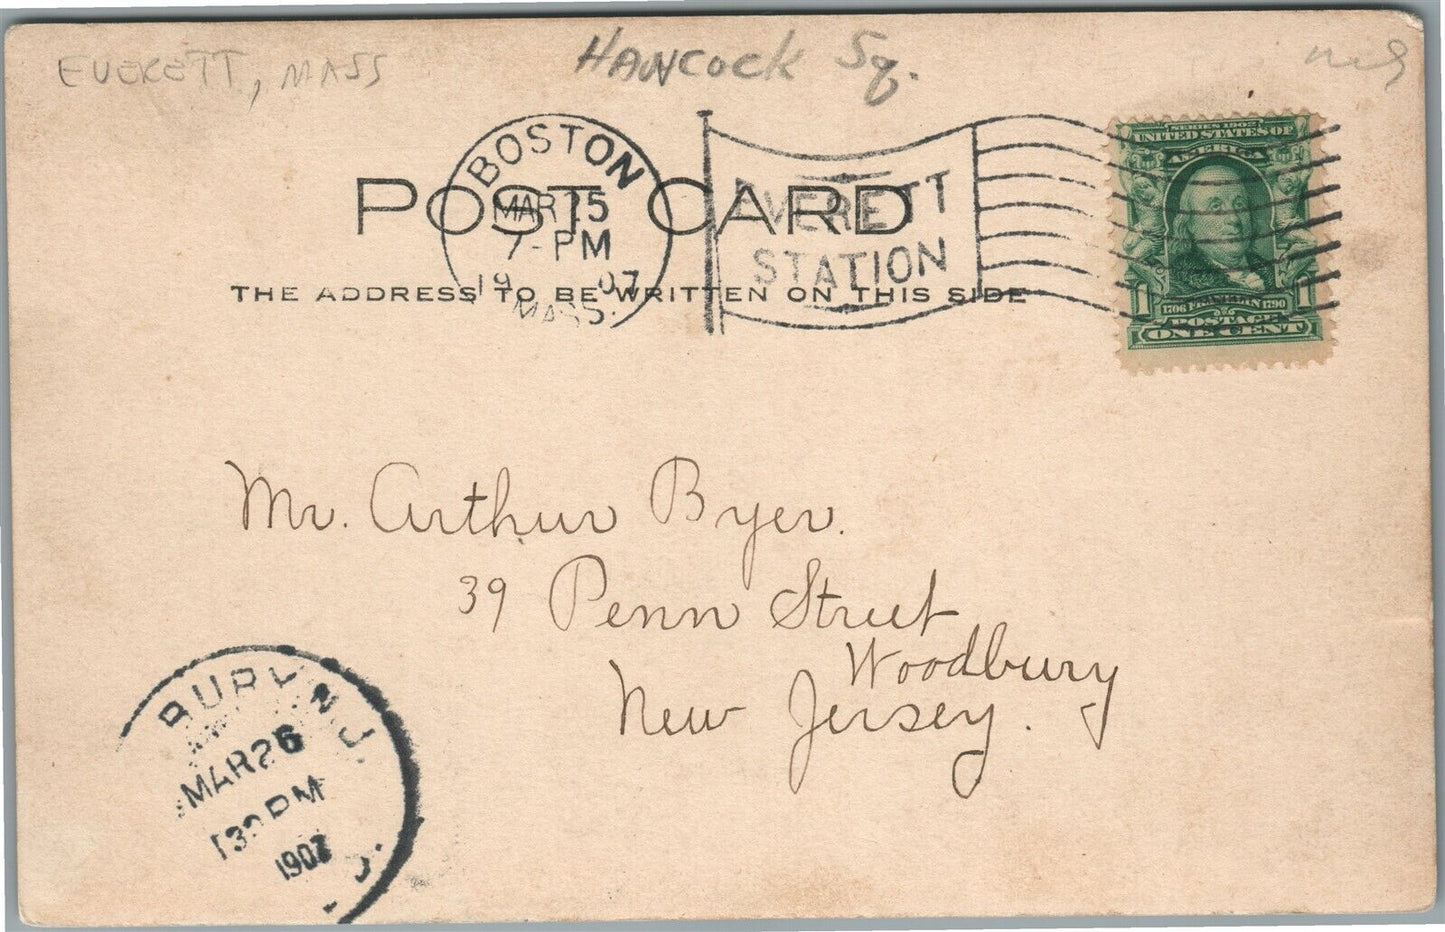 EVERETT, MASS
HANCOCK Sq.
BOSTON
MAR 25
7-PM
1907
MASS.
EVERETT
STATION
POST CARD
THE ADDRESS TO BE WRITTEN ON THIS SIDE
SERIES 1902
UNITED STATES OF
AMERICA
1 1706 FRANKLIN 1790 1
POSTAGE
ONE CENT
Mr. Arthur Byer.
39 Penn Street
Woodbury
New Jersey.
BURY N.J.
MAR 26
PM
1907